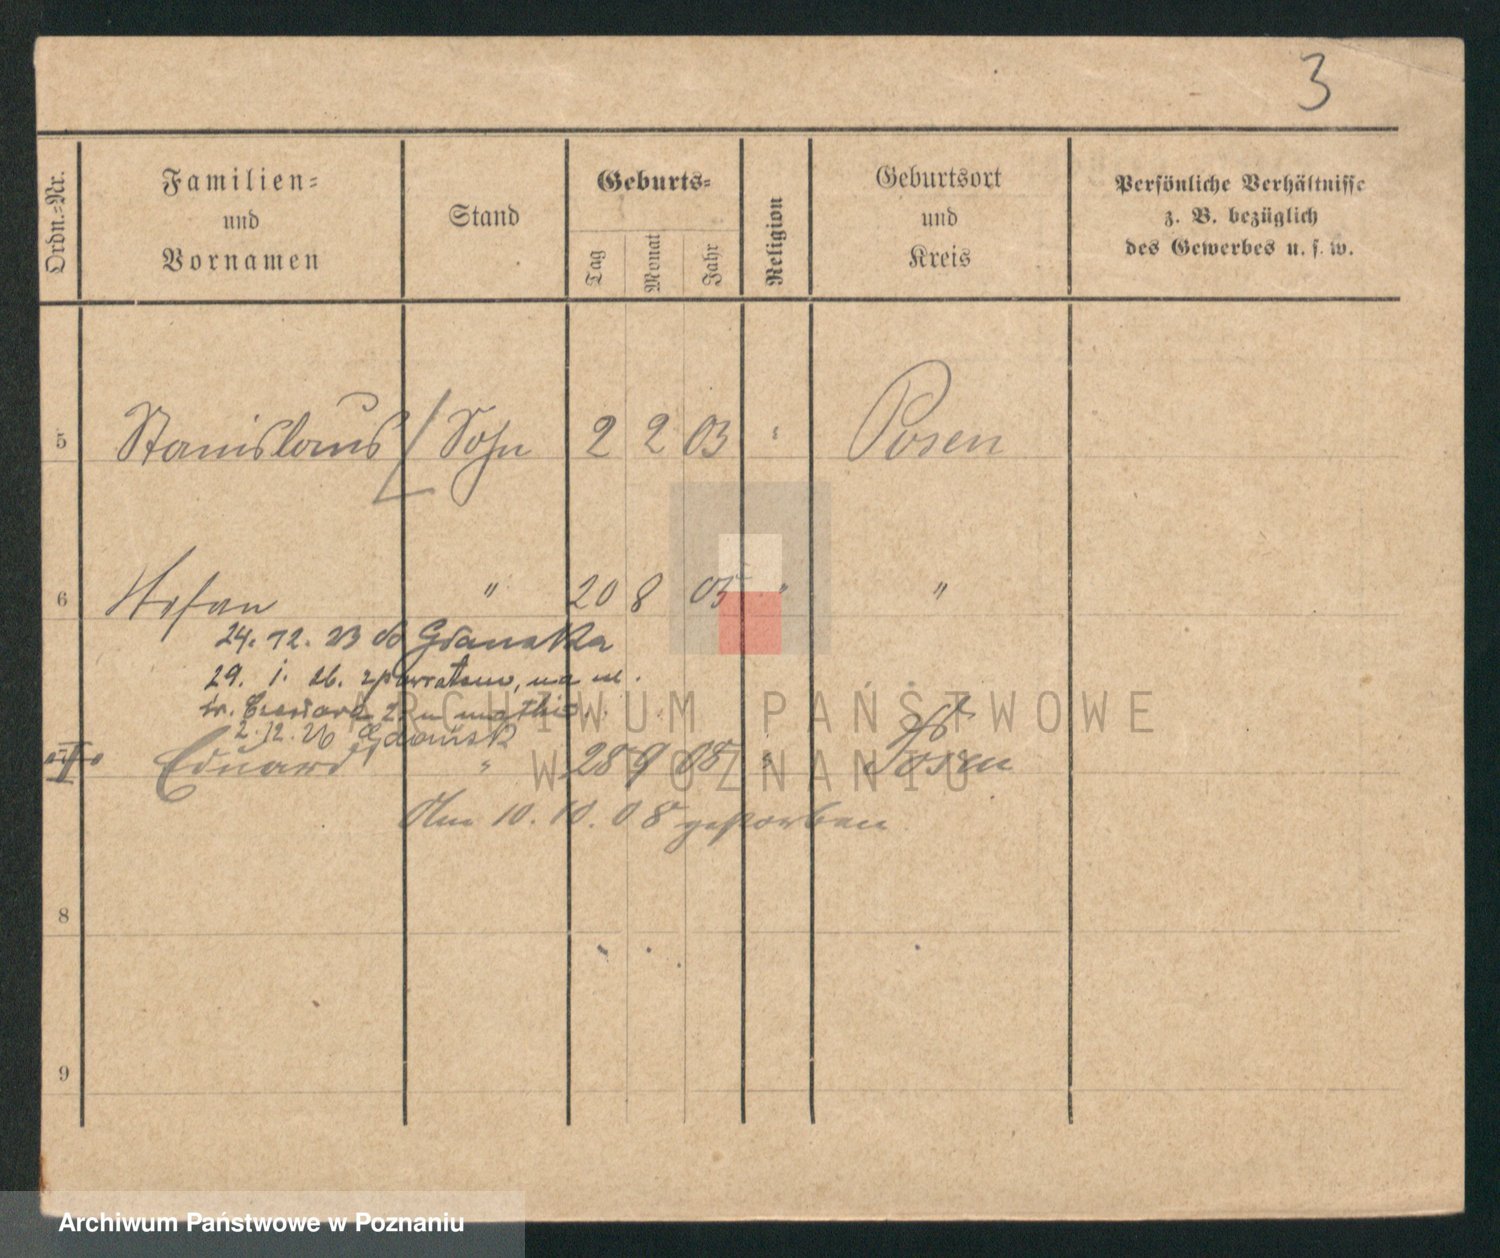 3
Ordn.-Nr.
Familien-
und
Vornamen
Stand
Geburts-
Tag
Monat
Jahr
Religion
Geburtsort
und
Kreis
Persönliche Verhältnisse
z. B. bezüglich
des Gewerbes u. s. w.
5 Stanislaus Sohn 2 2 03 " Posen
6 Stefan " 20 8 05 " "
24. 12. 23 do Gdanska
29. 1. 26. zpowrotem, na ul.
2. 12. 26 Gdańsk
Eduard " 28 9 08 " Posen
Am 10. 10. 08 gestorben
8
9
ARCHIWUM PAŃSTWOWE
W POZNANIU
Archiwum Państwowe w Poznaniu